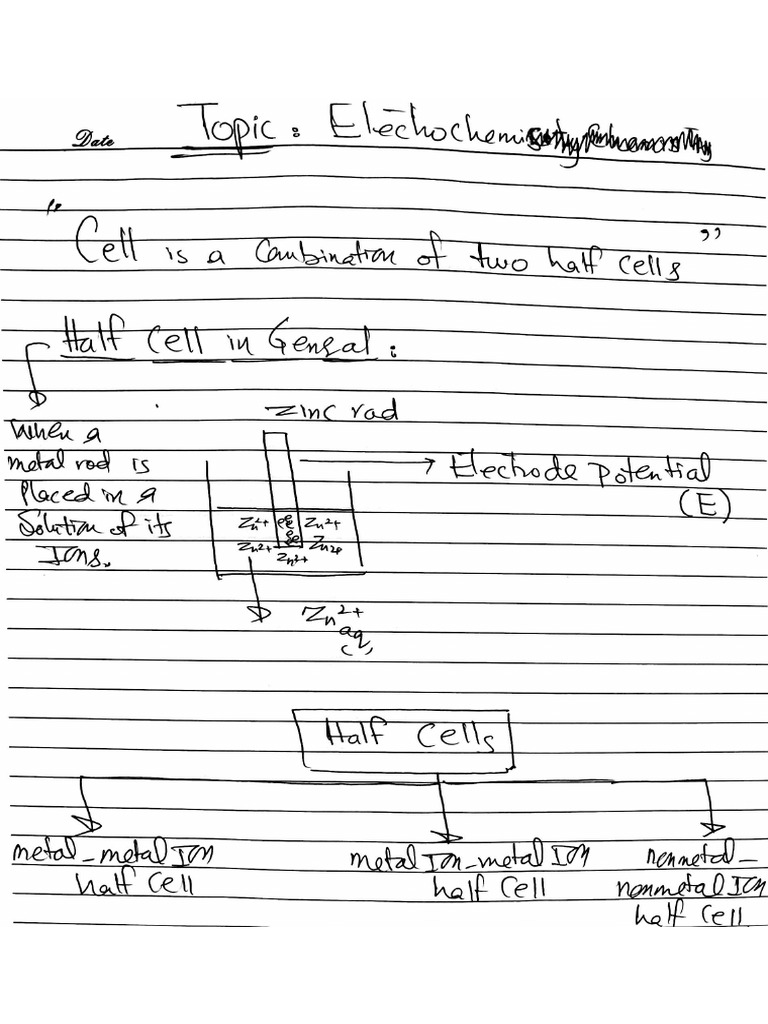 Date
Topic: Electrochemistry
" Cell is a Combination of two half cells "
Half Cell in General:
When a
metal rod is
Placed in a
Solution of its
Ions.
Zinc rad
Electrode Potential
(E)
Zn2+ Zn2+
Zn2+ Zn2e
Zn2+
Zn2+
aq
Half Cells
metal-metal Ion
half Cell
metal Ion-metal Ion
half Cell
nonmetal-
nonmetal Ion
half Cell